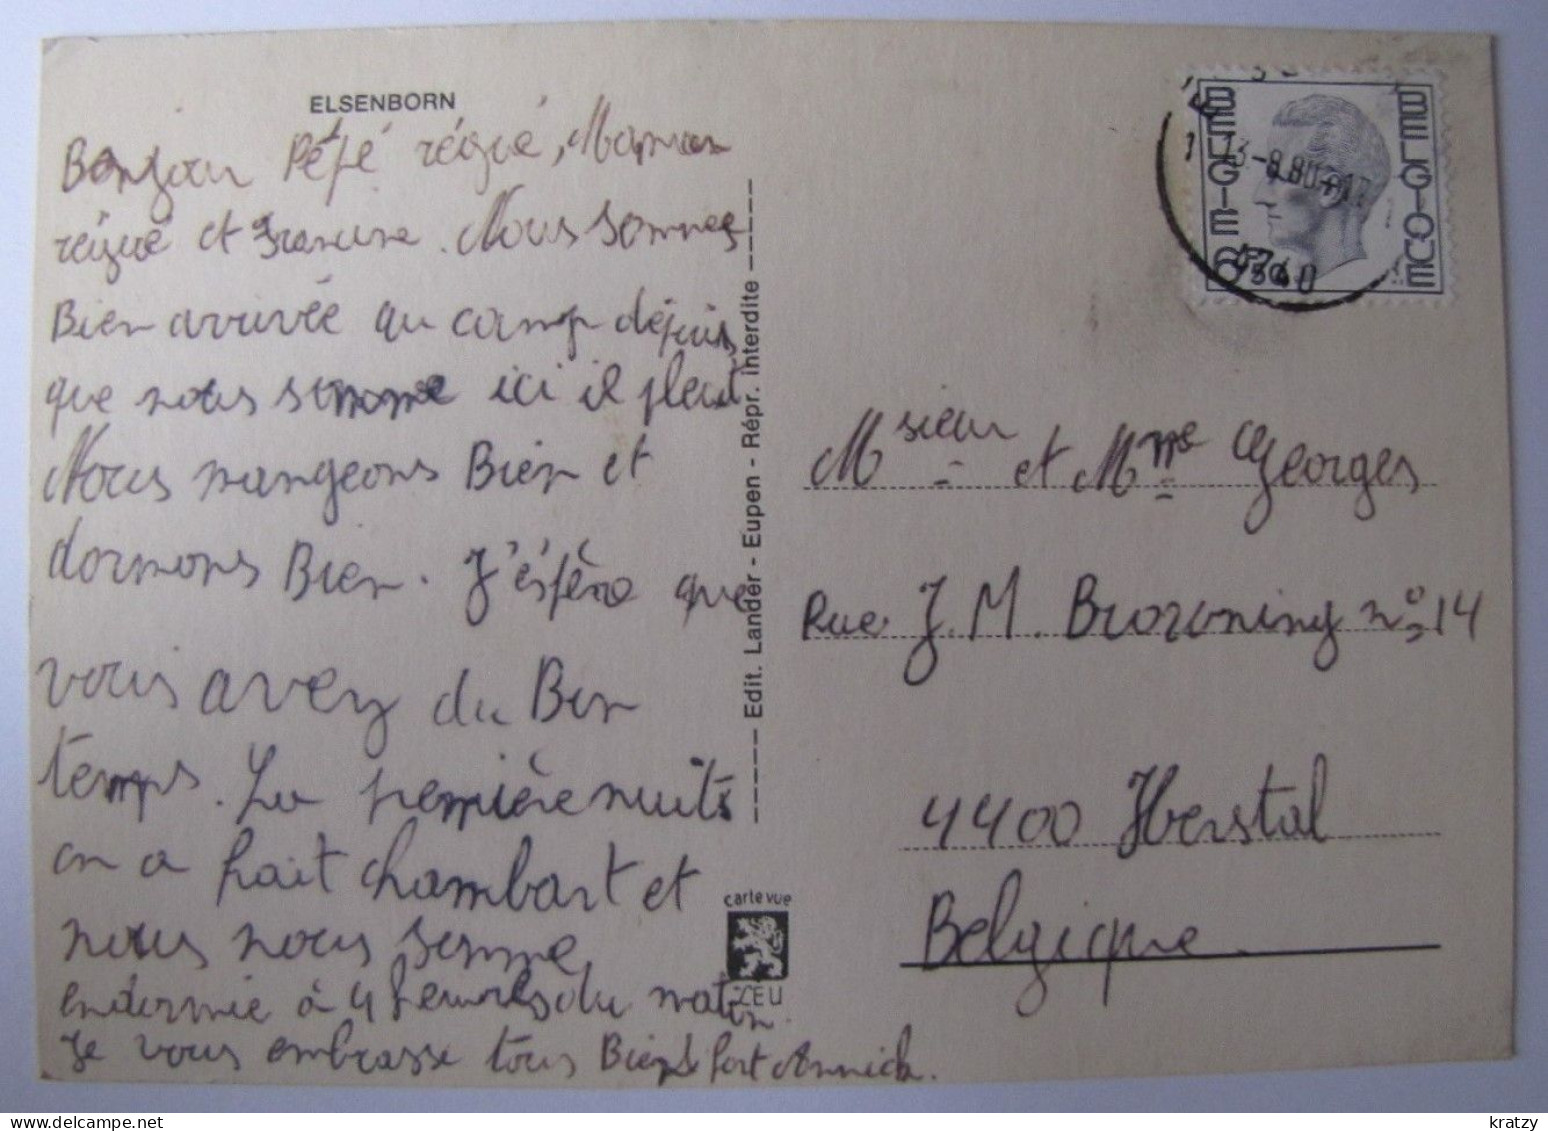 ELSENBORN
Bonjour Pépé Maman
et Francine. Nous sommes
Bien arrivée au camp dépuis
que nous somme ici il pleut
Nous mangeons Bien et
dormons Bien. J'éspére que
vous avez du Bon
temps. La première nuits
on a fait chambart et
nous nous somme
endormie à 4 heures du matin.
Je vous embrasse tous Bien fort Annick.
Edit. Lander - Eupen - Répr. interdite
carte vue
ZEU
BELGIE BELGIQUE
13-8.80
Msieur et Mme Georges
Rue J.M. Browning n° 14
4400 Herstal
Belgique
kratzy